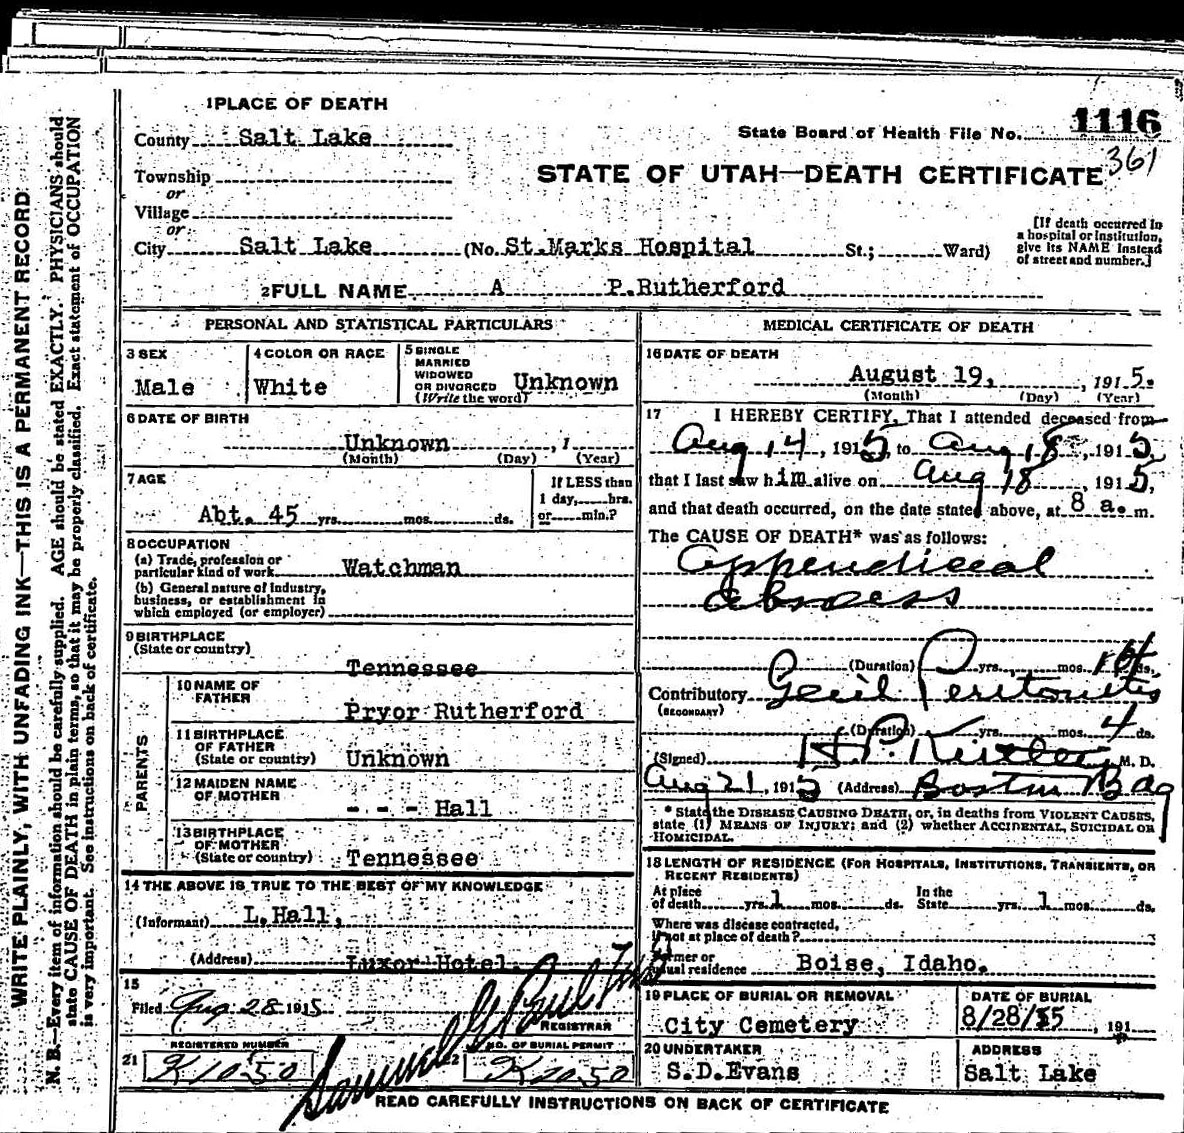 1 PLACE OF DEATH
County Salt Lake
State Board of Health File No. 1116
361
Township
or
Village
or
STATE OF UTAH—DEATH CERTIFICATE
City Salt Lake (No. St.Marks Hospital St.; Ward)
[If death occurred in
a hospital or institution,
give its NAME instead
of street and number.]
2 FULL NAME A P.Rutherford
PERSONAL AND STATISTICAL PARTICULARS
3 SEX
Male
4 COLOR OR RACE
White
5 SINGLE
MARRIED
WIDOWED
OR DIVORCED
(Write the word)
Unknown
6 DATE OF BIRTH
Unknown , 1
(Month) (Day) (Year)
7 AGE
Abt. 45 yrs. mos. ds.
If LESS than
1 day, hrs.
or min.?
8 OCCUPATION
(a) Trade, profession or
particular kind of work Watchman
(b) General nature of Industry,
business, or establishment in
which employed (or employer)
9 BIRTHPLACE
(State or country)
Tennessee
PARENTS
10 NAME OF
FATHER
Pryor Rutherford
11 BIRTHPLACE
OF FATHER
(State or country) Unknown
12 MAIDEN NAME
OF MOTHER
- - - Hall
13 BIRTHPLACE
OF MOTHER
(State or country) Tennessee
14 THE ABOVE IS TRUE TO THE BEST OF MY KNOWLEDGE
(Informant) L.Hall,
(Address) Luxor Hotel.
15
Filed Aug 28 1915
REGISTRAR
21
REGISTERED NUMBER
K1050
22
NO. OF BURIAL PERMIT
MEDICAL CERTIFICATE OF DEATH
16 DATE OF DEATH
August 19, , 1915.
(Month) (Day) (Year)
17 I HEREBY CERTIFY, That I attended deceased from
Aug 14 , 1915, to Aug 18 , 1915
that I last saw him alive on Aug 18 , 1915,
and that death occurred, on the date stated above, at 8 a. m.
The CAUSE OF DEATH* was as follows:
appendiceal
abscess
(Duration) yrs. mos. ds.
Contributory Genl Peritonitis
(SECONDARY)
(Duration) yrs. mos. 4 ds.
(Signed) M. D.
Aug 21, 1915 (Address) Boston Bdg
* State the DISEASE CAUSING DEATH, or, in deaths from VIOLENT CAUSES,
state (1) MEANS OF INJURY; and (2) whether ACCIDENTAL, SUICIDAL OR
HOMICIDAL.
18 LENGTH OF RESIDENCE (FOR HOSPITALS, INSTITUTIONS, TRANSIENTS, OR
RECENT RESIDENTS)
At place
of death yrs. 1 mos. ds.
In the
State yrs. 1 mos. ds.
Where was disease contracted,
if not at place of death?
Former or
usual residence Boise, Idaho.
19 PLACE OF BURIAL OR REMOVAL
City Cemetery
DATE OF BURIAL
8/28/15 , 191
20 UNDERTAKER
S.D.Evans
ADDRESS
Salt Lake
READ CAREFULLY INSTRUCTIONS ON BACK OF CERTIFICATE
WRITE PLAINLY, WITH UNFADING INK—THIS IS A PERMANENT RECORD
N. B.—Every item of information should be carefully supplied. AGE should be stated EXACTLY. PHYSICIANS should
state CAUSE OF DEATH in plain terms, so that it may be properly classified. Exact statement of OCCUPATION
is very important. See instructions on back of certificate.